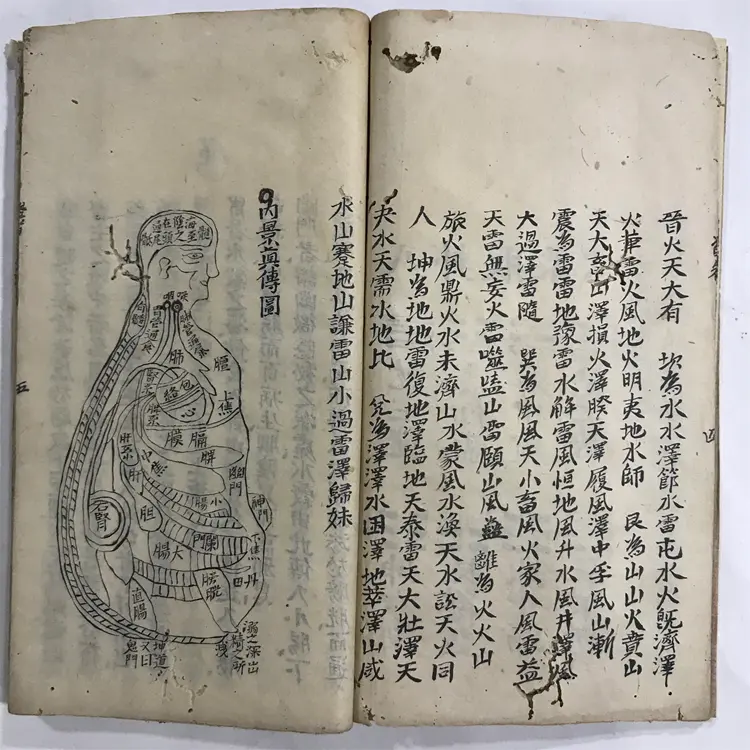 晉火天大有　坎為水水澤節水雷屯水火旣濟澤
火革雷火風地火明夷地水師　艮為山山火賁山
天大畜山澤損火澤睽天澤履風澤中孚風山漸
震為雷雷地豫雷水解雷風恒地風升水風井澤風
大過澤雷隨　巽為風風天小畜風火家人風雷益
天雷無妄火雷噬嗑山雷頤山風蠱　離為火火山
旅火風鼎火水未濟山水蒙風水渙天水訟天火同
人　坤為地地雷復地澤臨地天泰雷天大壯澤天
夬水天需水地比　兌為澤澤水困澤地萃澤山咸
水山蹇地山謙雷山小過雷澤歸妹
內景眞傳圖
髓海
至陰
在頭
喉
肺
膻
上焦
包
絡
心
膈
膜
脾
肝系
肝
胆
小腸
幽門
闌門
神門
右腎
大腸
下焦
丹田
膀胱
直腸
溺之深出
精之所
坤道
又曰
鬼門
四
五